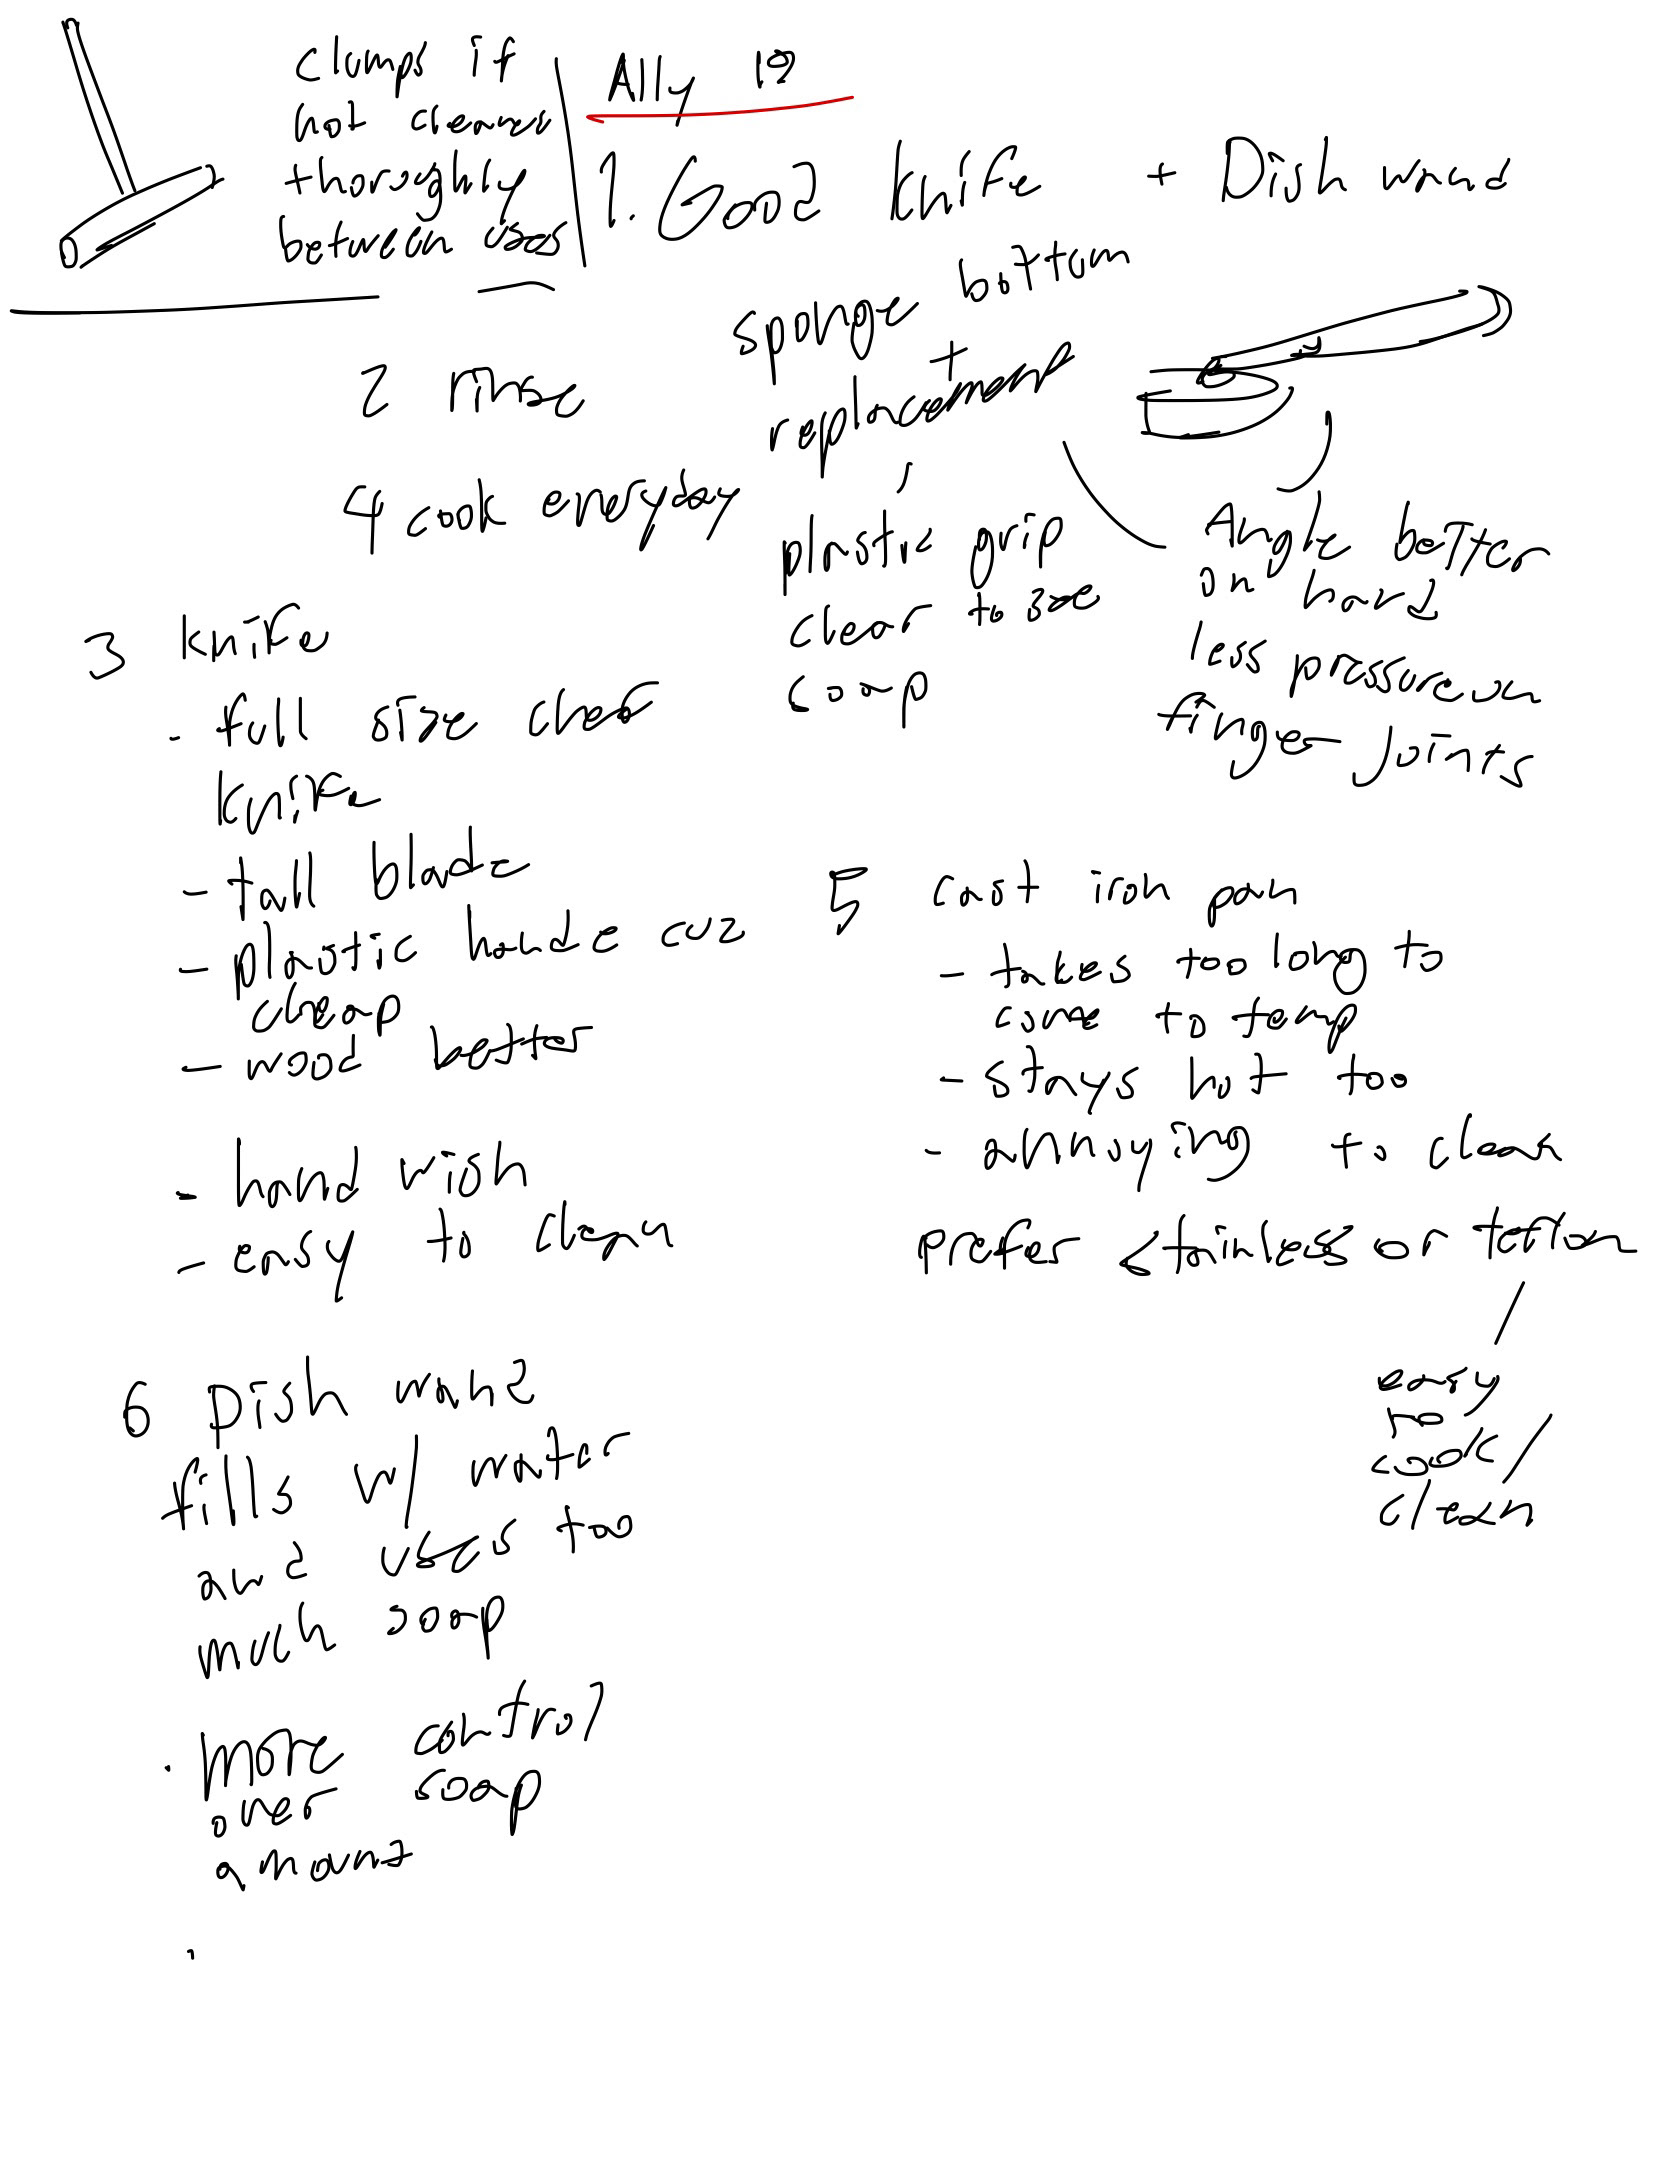 clumps if
not cleaned
thoroghly
between uses
Ally 19
1. Good knife + Dish wand
sponge bottom
+
replacement
plastic grip
clear to see
soap
Angle better
on hard
less pressure on
finger joints
2 rinse
4 cook everyday
3 knife
- full size chef
knife
- tall blade
- plastic hande cuz
cheap
- wood better
- hand wish
- easy to clean
5 cast iron pan
- takes too long to
come to temp
- stays hot too
- annoying to clean
prefer stainless or teflon
easy
to
cook/
clean
6 Dish wand
fills w/ water
and uses too
much soap
. more control
over soap
amount